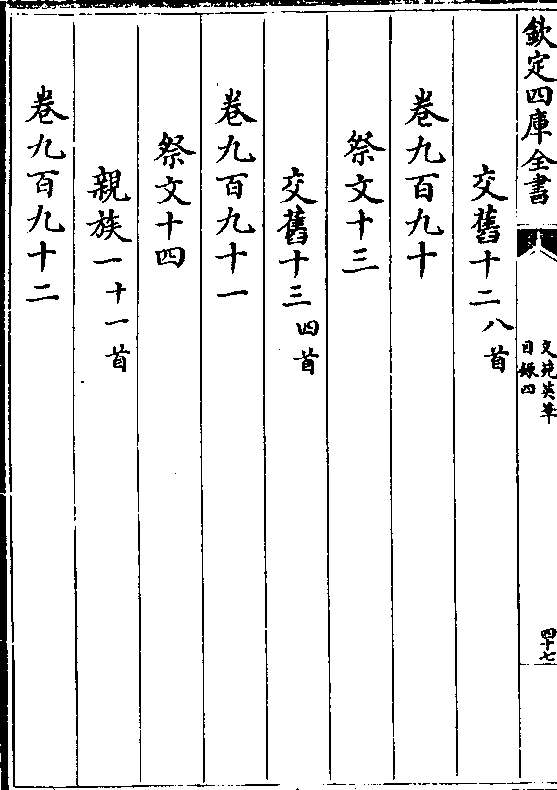 欽定四庫全書
文苑英華
目録四
四十七
交舊十二八首
卷九百九十
祭文十三
交舊十三四首
卷九百九十一
祭文十四
親族一十一首
卷九百九十二